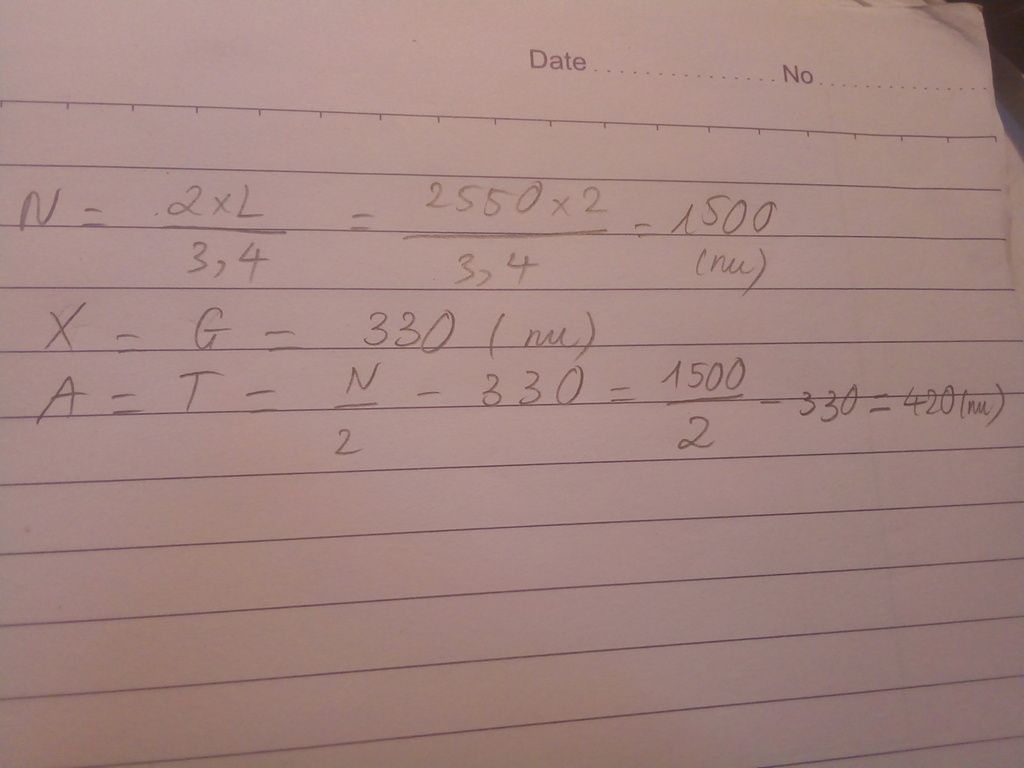 Date.....................No.....................
N = 2 x L / 3,4 = 2550 x 2 / 3,4 = 1500 (nu)
X = G = 330 (nu)
A = T = N / 2 - 330 = 1500 / 2 - 330 = 420 (nu)